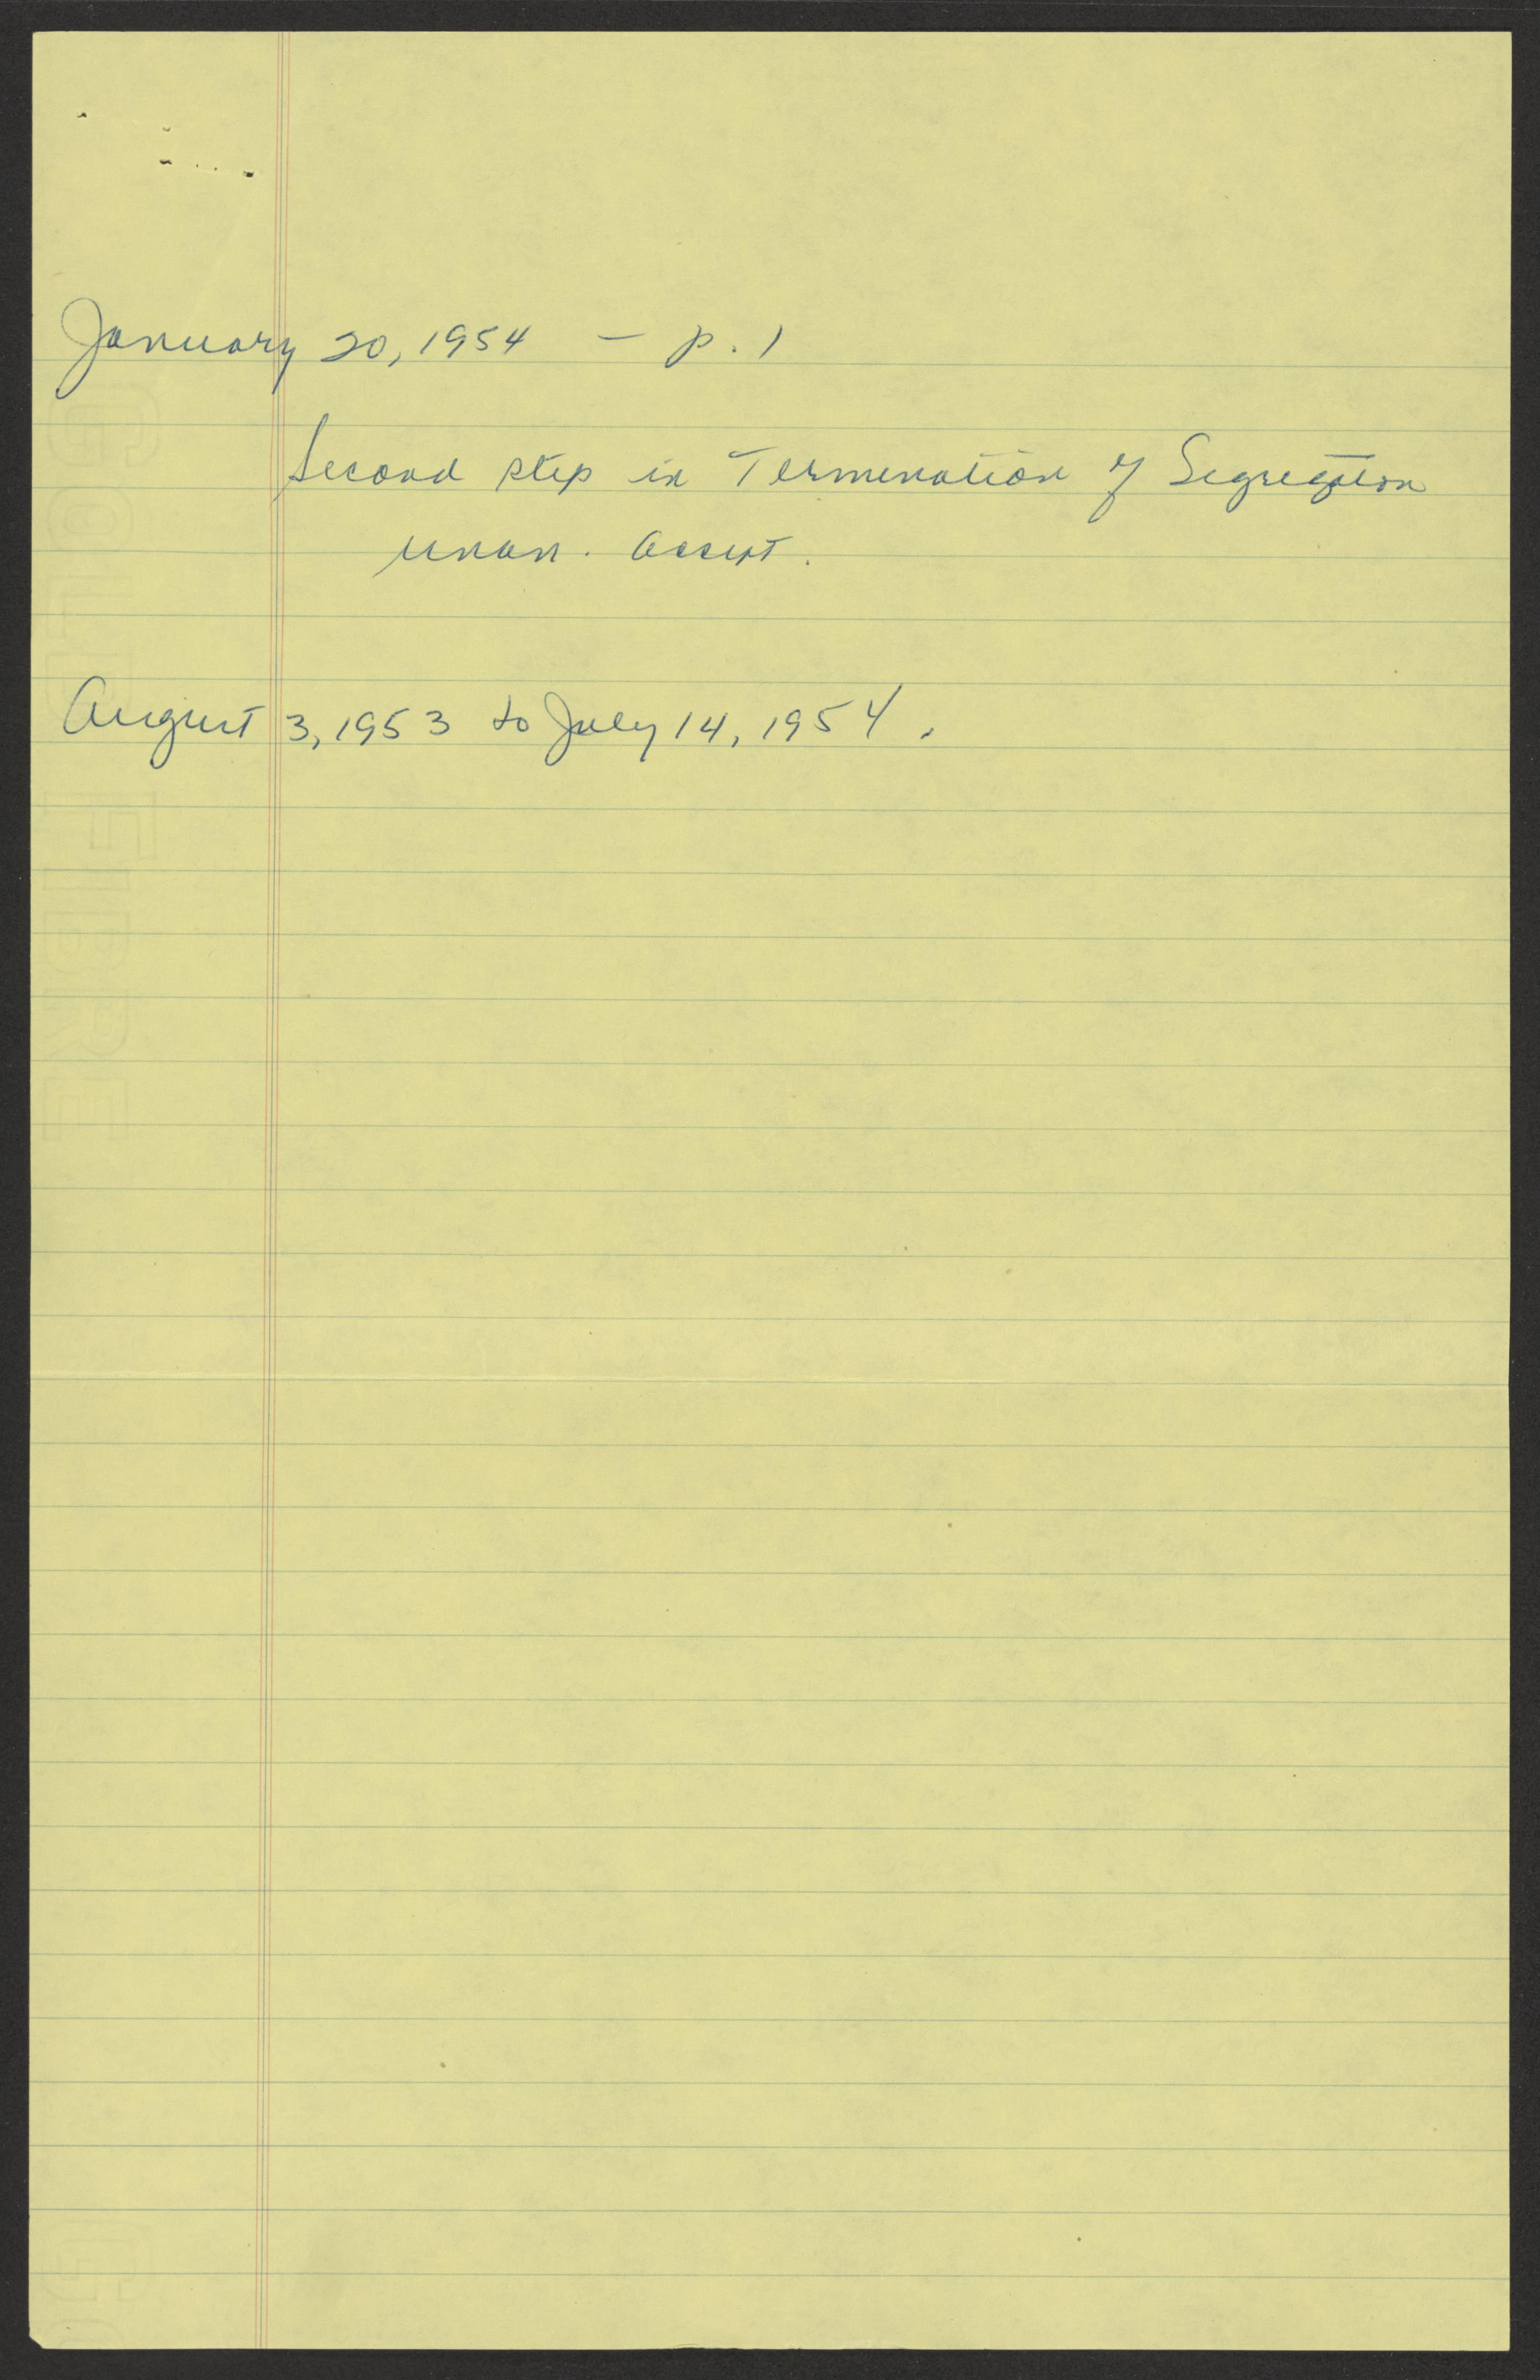 January 20, 1954 – p. 1
Second step in Termination of Segregation
unan. accept.
August 3, 1953 to July 14, 1954.
GOLD FIBRE